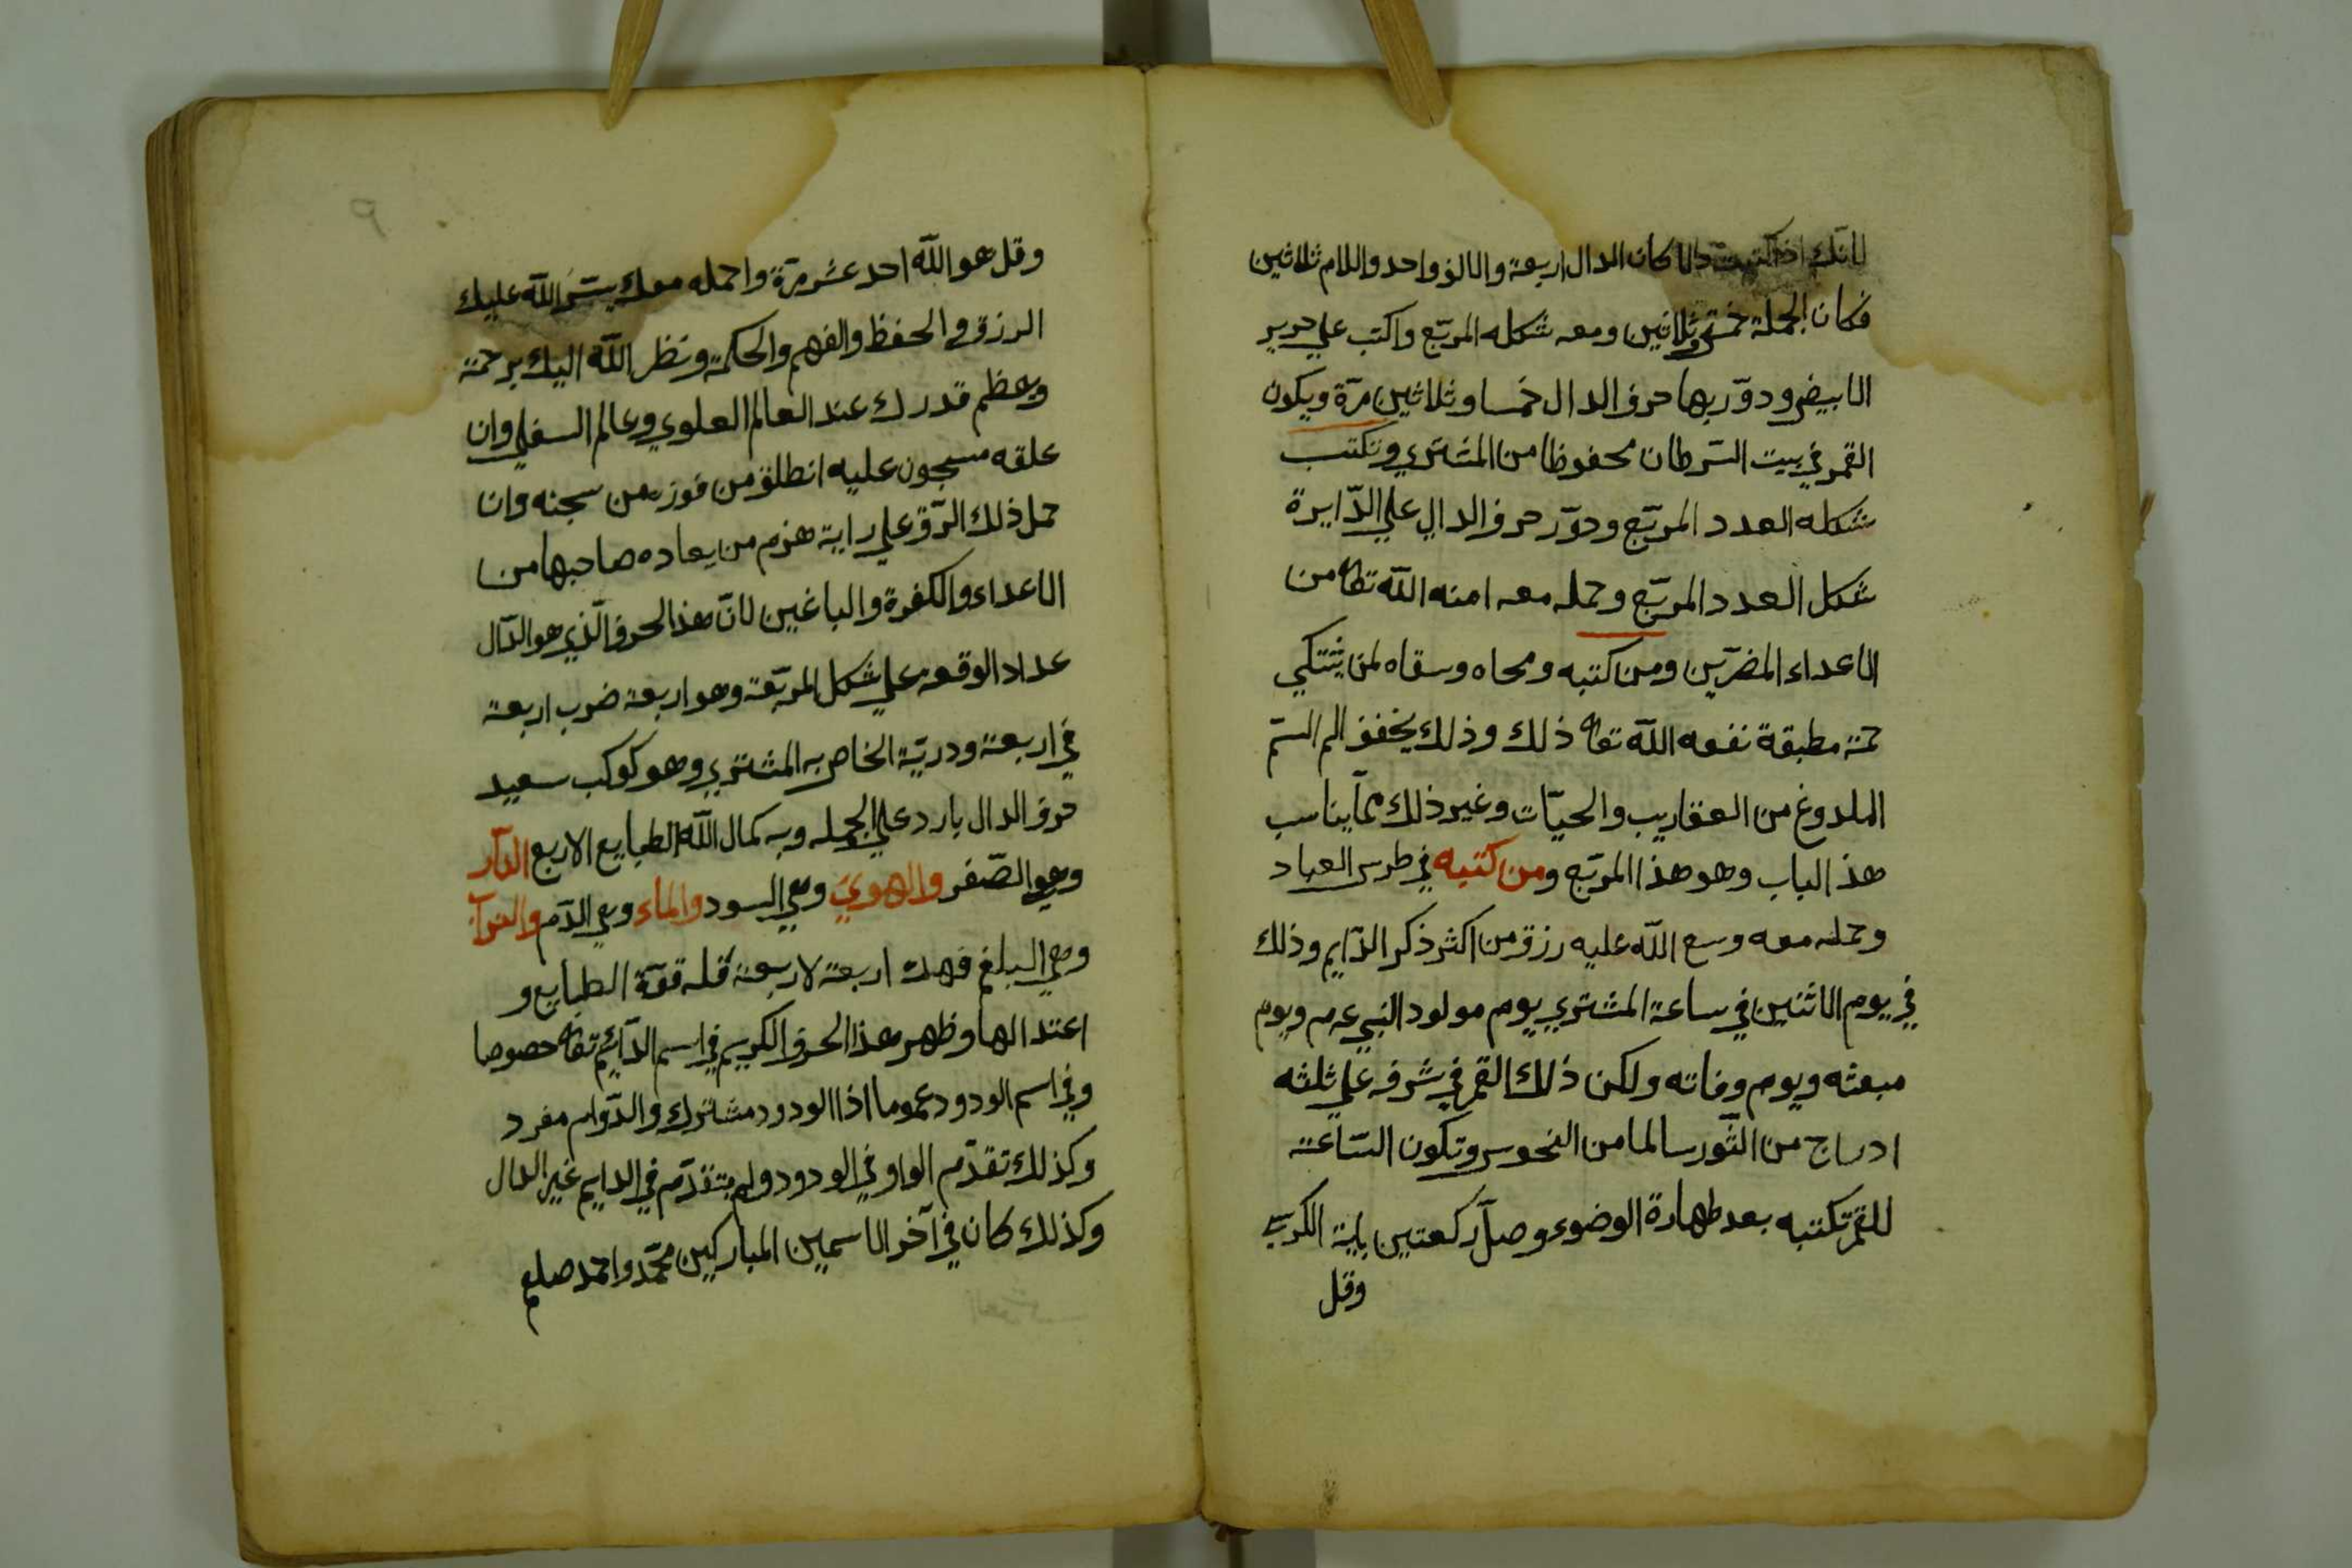 لانك اذا كتبت دالا كان الدال اربعة والالف واحد واللام ثلاثين
فكان الجملة خمسة وثلاثين ومعه شكله المربّع واكتب علي حرير
الابيض ودوّر بها حرف الدال خمسا وثلاثين مرّة ويكون
القمر في بيت السّرطان محفوظا من المشتري وتكتب
شكله العدد المربّع ودوّر حرف الدال علي الدّايرة
شكل العدد المربّع وحمله معه امنه الله تعا من
الاعداء المضرّين ومن كتبه ومحاه وسقاه لمن يشتكي
حمّة مطبقة نفعه الله تعا ذلك وذلك يخفف الم السّم
الملدوغ من العقاريب والحيّات وغير ذلك ممّا يناسب
هذ الباب وهو هذا المربّع ومن كتبه في طرس العباد
وحمله معه وسع الله عليه رزق من اكثر ذكر الدّايم وذلك
في يوم الاثنين في ساعة المشتري يوم مولود النبي عم ويوم
مبعثه ويوم وفاته ولكن ذلك القمر في شرفه علي ثلثه
ادراج من الثّور سالما من النحوس وتكون السّاعة
للقمر تكتبه بعد طهارة الوضوء وصلّ ركعتين باية الكرسي
وقل
٩
وقل هو الله احد عشر مرّة واحمله معك يسّر الله عليك
الرزق والحفظ والفهم والحكمة ونظر الله اليك برحمة
ويعظم قدرك عند العالم العلوي وعالم السفلي وان
علقه مسجون عليه انطلق من فوره من سجنه وان
حمل ذلك الرّق علي راية هزم من يعاده صاحبها من
الاعداء والكفرة والباغين لانّ هذ الحرف الّذي هو الدّال
عداد الوقعه علي شكل المربّعة وهو اربعة ضرب اربعة
في اربعة ودريّة الخاص به المشتري وهو كوكب سعيد
حرف الدال بارد علي الجمله وبه كمال الله الطبايع الاربع النّار
وهي الصّفر والهوي وهي السود والماء وهي الدّم والتراب
وهي البلغم فهذه اربعة لاربعة قله قوّة الطبايع و
اعتدالها وظهر هذا الحرف الكريم في اسم الدّائم تعا خصوصا
وفي اسم الودود عموما اذا الودود مشترك والدّوام مفرد
وكذلك تقدّم الواو في الودود ولم يتقدّم في الدايم غير الدال
وكذلك كان في آخر الاسمين المباركين محمّد واحمد صلعم